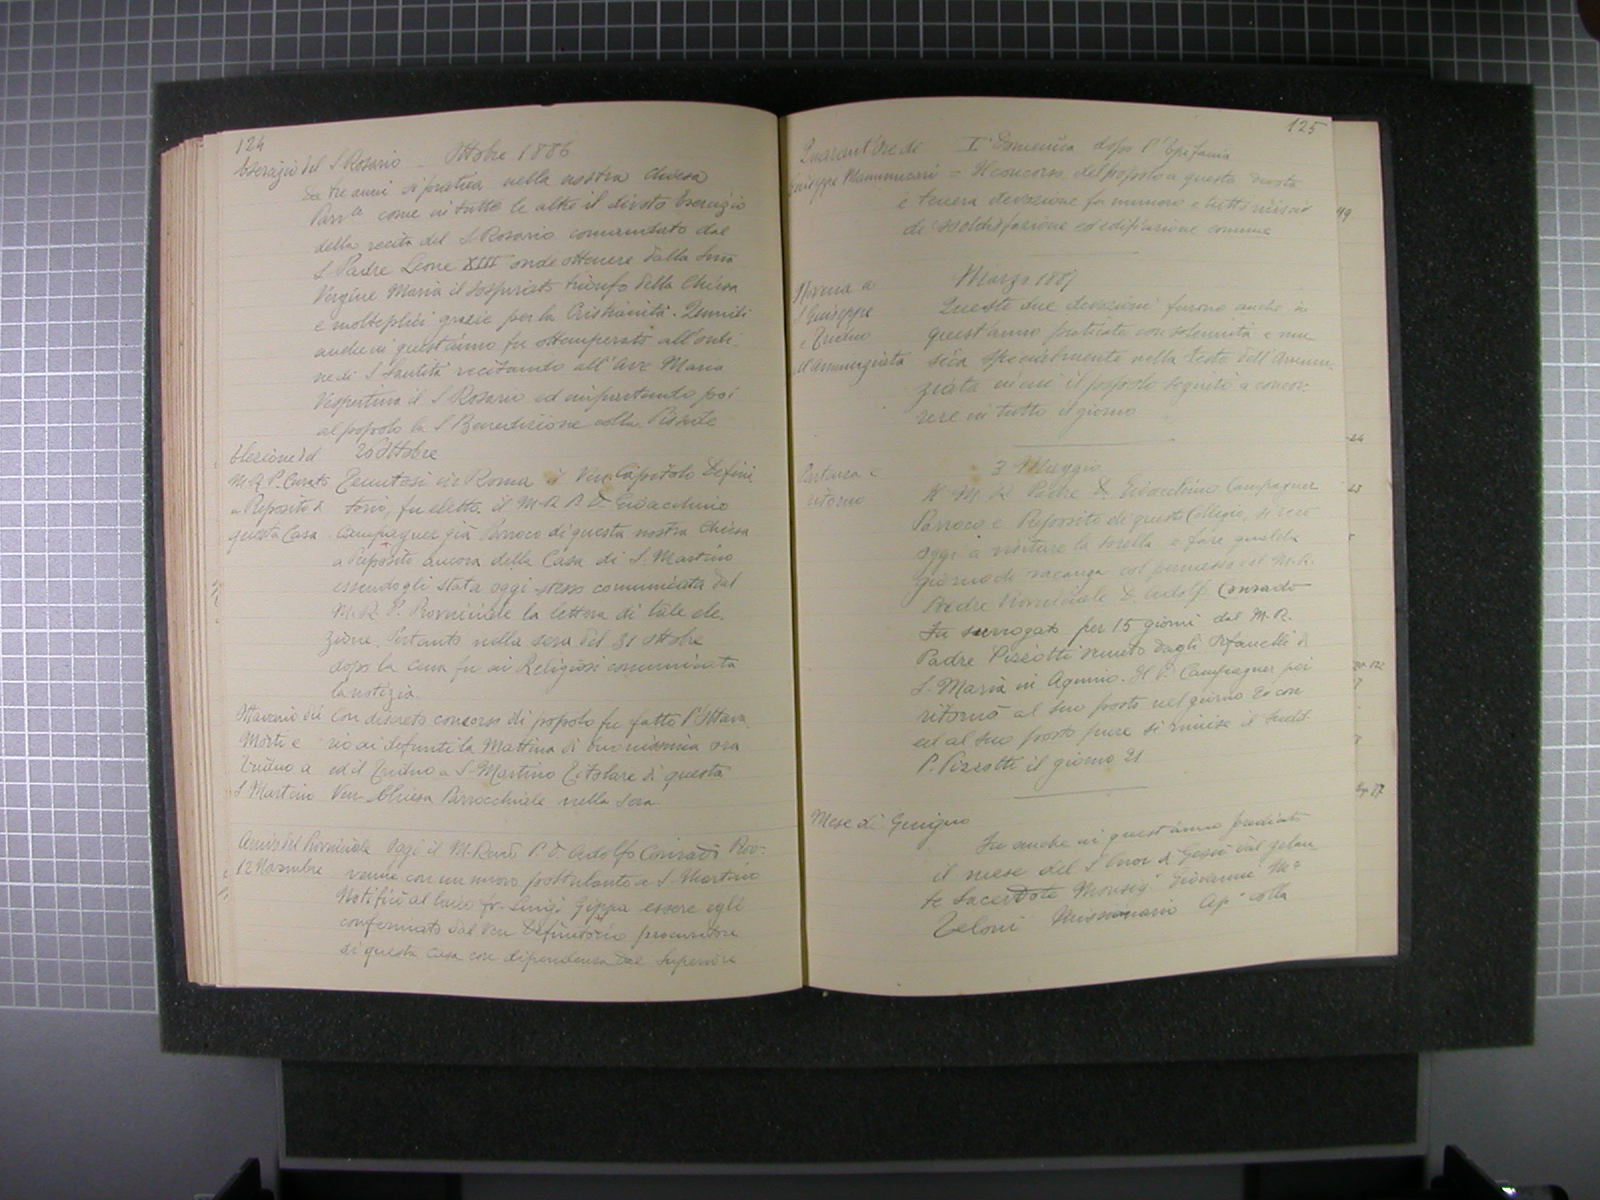 124
Esercizio del S. Rosario - Ottobre 1886
Da tre anni si pratica nella nostra Chiesa
Parr.le come in tutte le altre il divoto Esercizio
della recita del S. Rosario comandato dal
S. Padre Leone XIII onde ottenere dalla SSma
Vergine Maria il sospirato trionfo della Chiesa
e molteplici grazie per la Cristianità. Quindi
anche in quest'anno fu ottemperato all'ordi
ne di S. Santità recitando all'Ave Maria
Vespertina il S. Rosario ed impartendo poi
al popolo la S. Benedizione colla Pisside
Elezione del 26 Ottobre
M.R. P. Curato Tenutosi in Roma il Ven. Capitolo Defini
a Preposito di torio, fu eletto il M.R. P. D. Gioacchino
questa Casa Campagner già Parroco di questa nostra Chiesa
a Preposito ancora della Casa di S. Martino
essendogli stata oggi stesso comunicata dal
M.R. P. Provinciale la lettera di tale ele-
zione. Pertanto nella sera del 31 ottobre
dopo la cena fu ai Religiosi comunicata
la notizia.
Ottavario dei Con discreto concorso di popolo fu fatto l'Ottava-
Morti e rio ai defunti la Mattina di buonissima ora
Triduo a ed il Triduo a S. Martino Titolare di questa
S. Martino Ven. Chiesa Parrocchiale nella sera
Arrivo del Provinciale Oggi il M. Rev.do P. D. Adolfo Conradi Pro-
12 Novembre venne con un nuovo postulante a S. Martino
Notificò al laico fr. Luigi Gippa essere egli
confermato dal Ven. Definitorio procuratore
di questa Casa con dipendenza dal Superiore
125
Quarant'Ore di I Domenica dopo l'Epifania
Giuseppe Mammucari = Il concorso del popolo a questa divota
e tenera devozione fu numero e tutto riuscì
di soddisfazione ed edificazione comune
Marzo 1887
Novena a
S. Giuseppe Queste due devozioni furono anche in
e Triduo quest'anno praticate con solennità e mu
all'Annunziata sica specialmente nella festa dell'Annun-
ziata in cui il popolo seguitò a concor-
rere in tutto il giorno
Partenza e 3 Maggio
ritorno Il M. R. Padre D. Gioacchino Campagner
Parroco e Preposito di questo Collegio, si recò
oggi a visitare la sorella e fare qualche
giorno di vacanza col permesso del M.R.
Padre Provinciale D. Adolfo Conrado
Fu surrogato per 15 giorni dal M. R.
Padre Pizzotti venuto dagli Orfanelli di
S. Maria in Aquiro. Il P. Campagner poi
ritornò al suo posto nel giorno 20 corr
ed al suo posto pure si rimise il sudd.
P. Pizzotti il giorno 21
Mese di Giugno
Fu anche in quest'anno predicato
il mese del S. Cuor di Gesù dal zelan
te Sacerdote Monsig.r Giovanni M.a
Zeloni Missionario Ap. colla